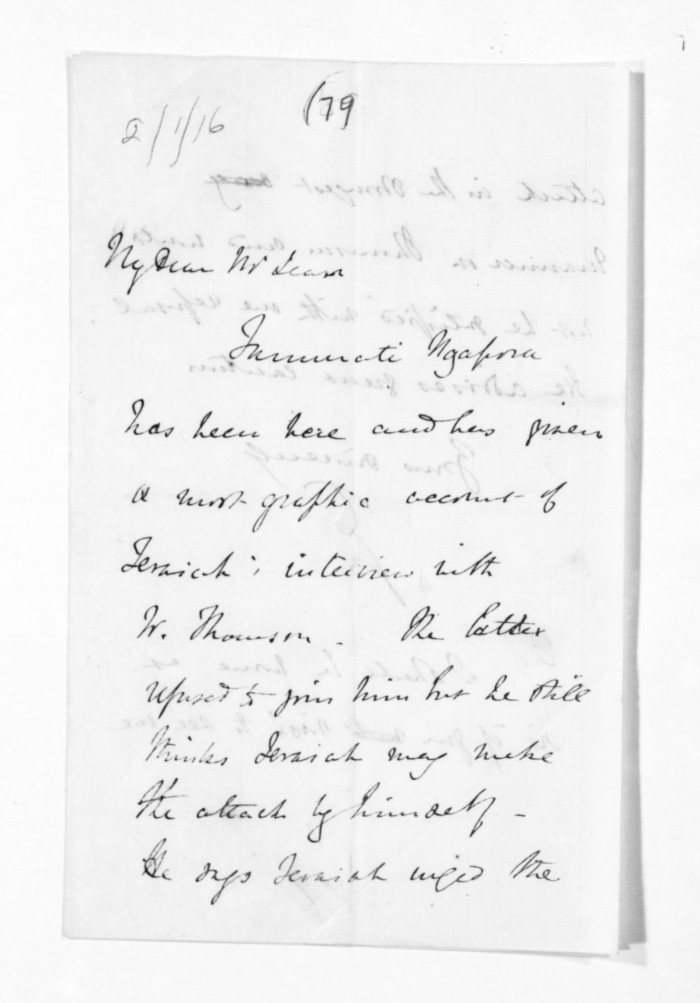 (79
2/1/16
My Dear Mr Lean
Tammati Ngapora
has been here and has given
a most graphic account of
Teraiah's interview with
W. Thomson - The latter
refused to join him but he still
thinks Teraiah may make
the attack by himself -
He says Teraiah urged the